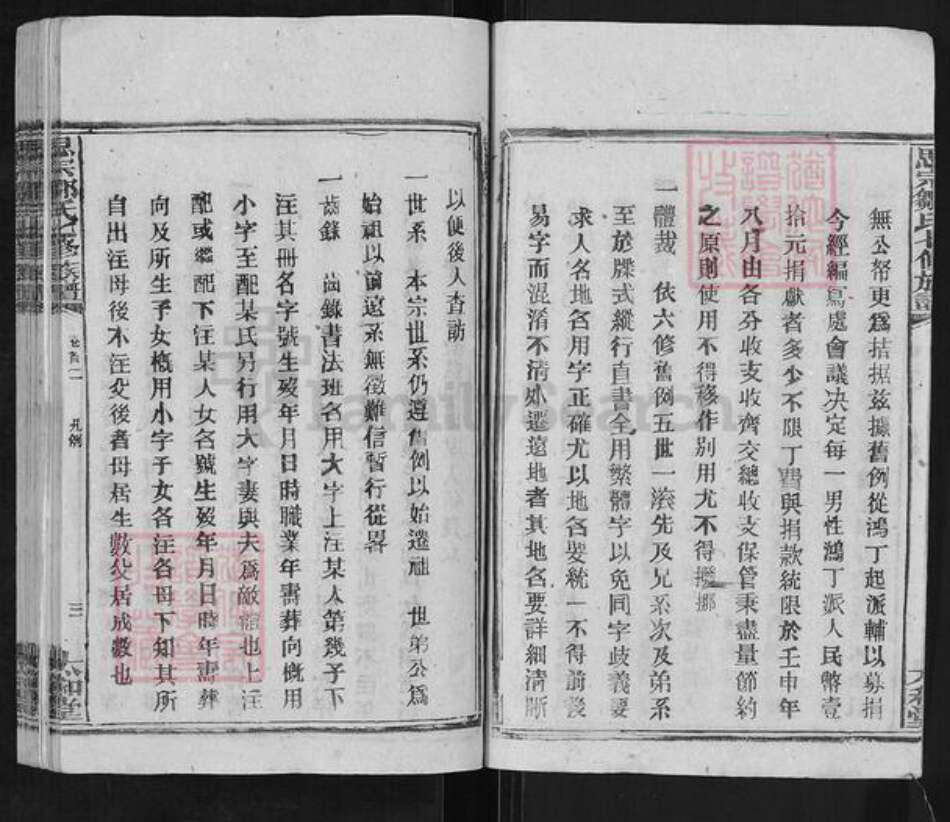 無公帑更爲拮据茲據舊例從鴻丁起派輔以募捐
今經編寫處會議决定每一男性鴻丁派人民幣壹
拾元捐獻者多少不限丁費與捐款統限於壬申年
八月由各分收支收齊交總收支保管秉盡量節約
之原則使用不得移作别用尤不得挪
一體裁 依六修舊例五世一淡先及兄系次及弟系
至於牒式縱行直書全用繁體字以免同字歧義要
求人名地名用字正確尤以地名要統一不得前後
易字而混淆不清外遷遠地者其地名要詳細清晰
以便後人查訪
一世系 本宗世系仍遵舊例以始遷祖 世弟公爲
始祖以前遠系無徵難信暫行從畧
一齒錄 齒錄書法班名用大字上注某人第幾子下
注其册名字號生歿年月日時職業年壽葬向概用
小字至配某氏另行用大字妻與夫爲敵體也上注
配或繼配下注某人女名號生歿年月日時年壽葬
向及所生子女概用小字子女各注各母下知其所
自出注母後不注父後者母居生數父居成數也
思宗鄒氏七修族譜
卷首二
凡例
三